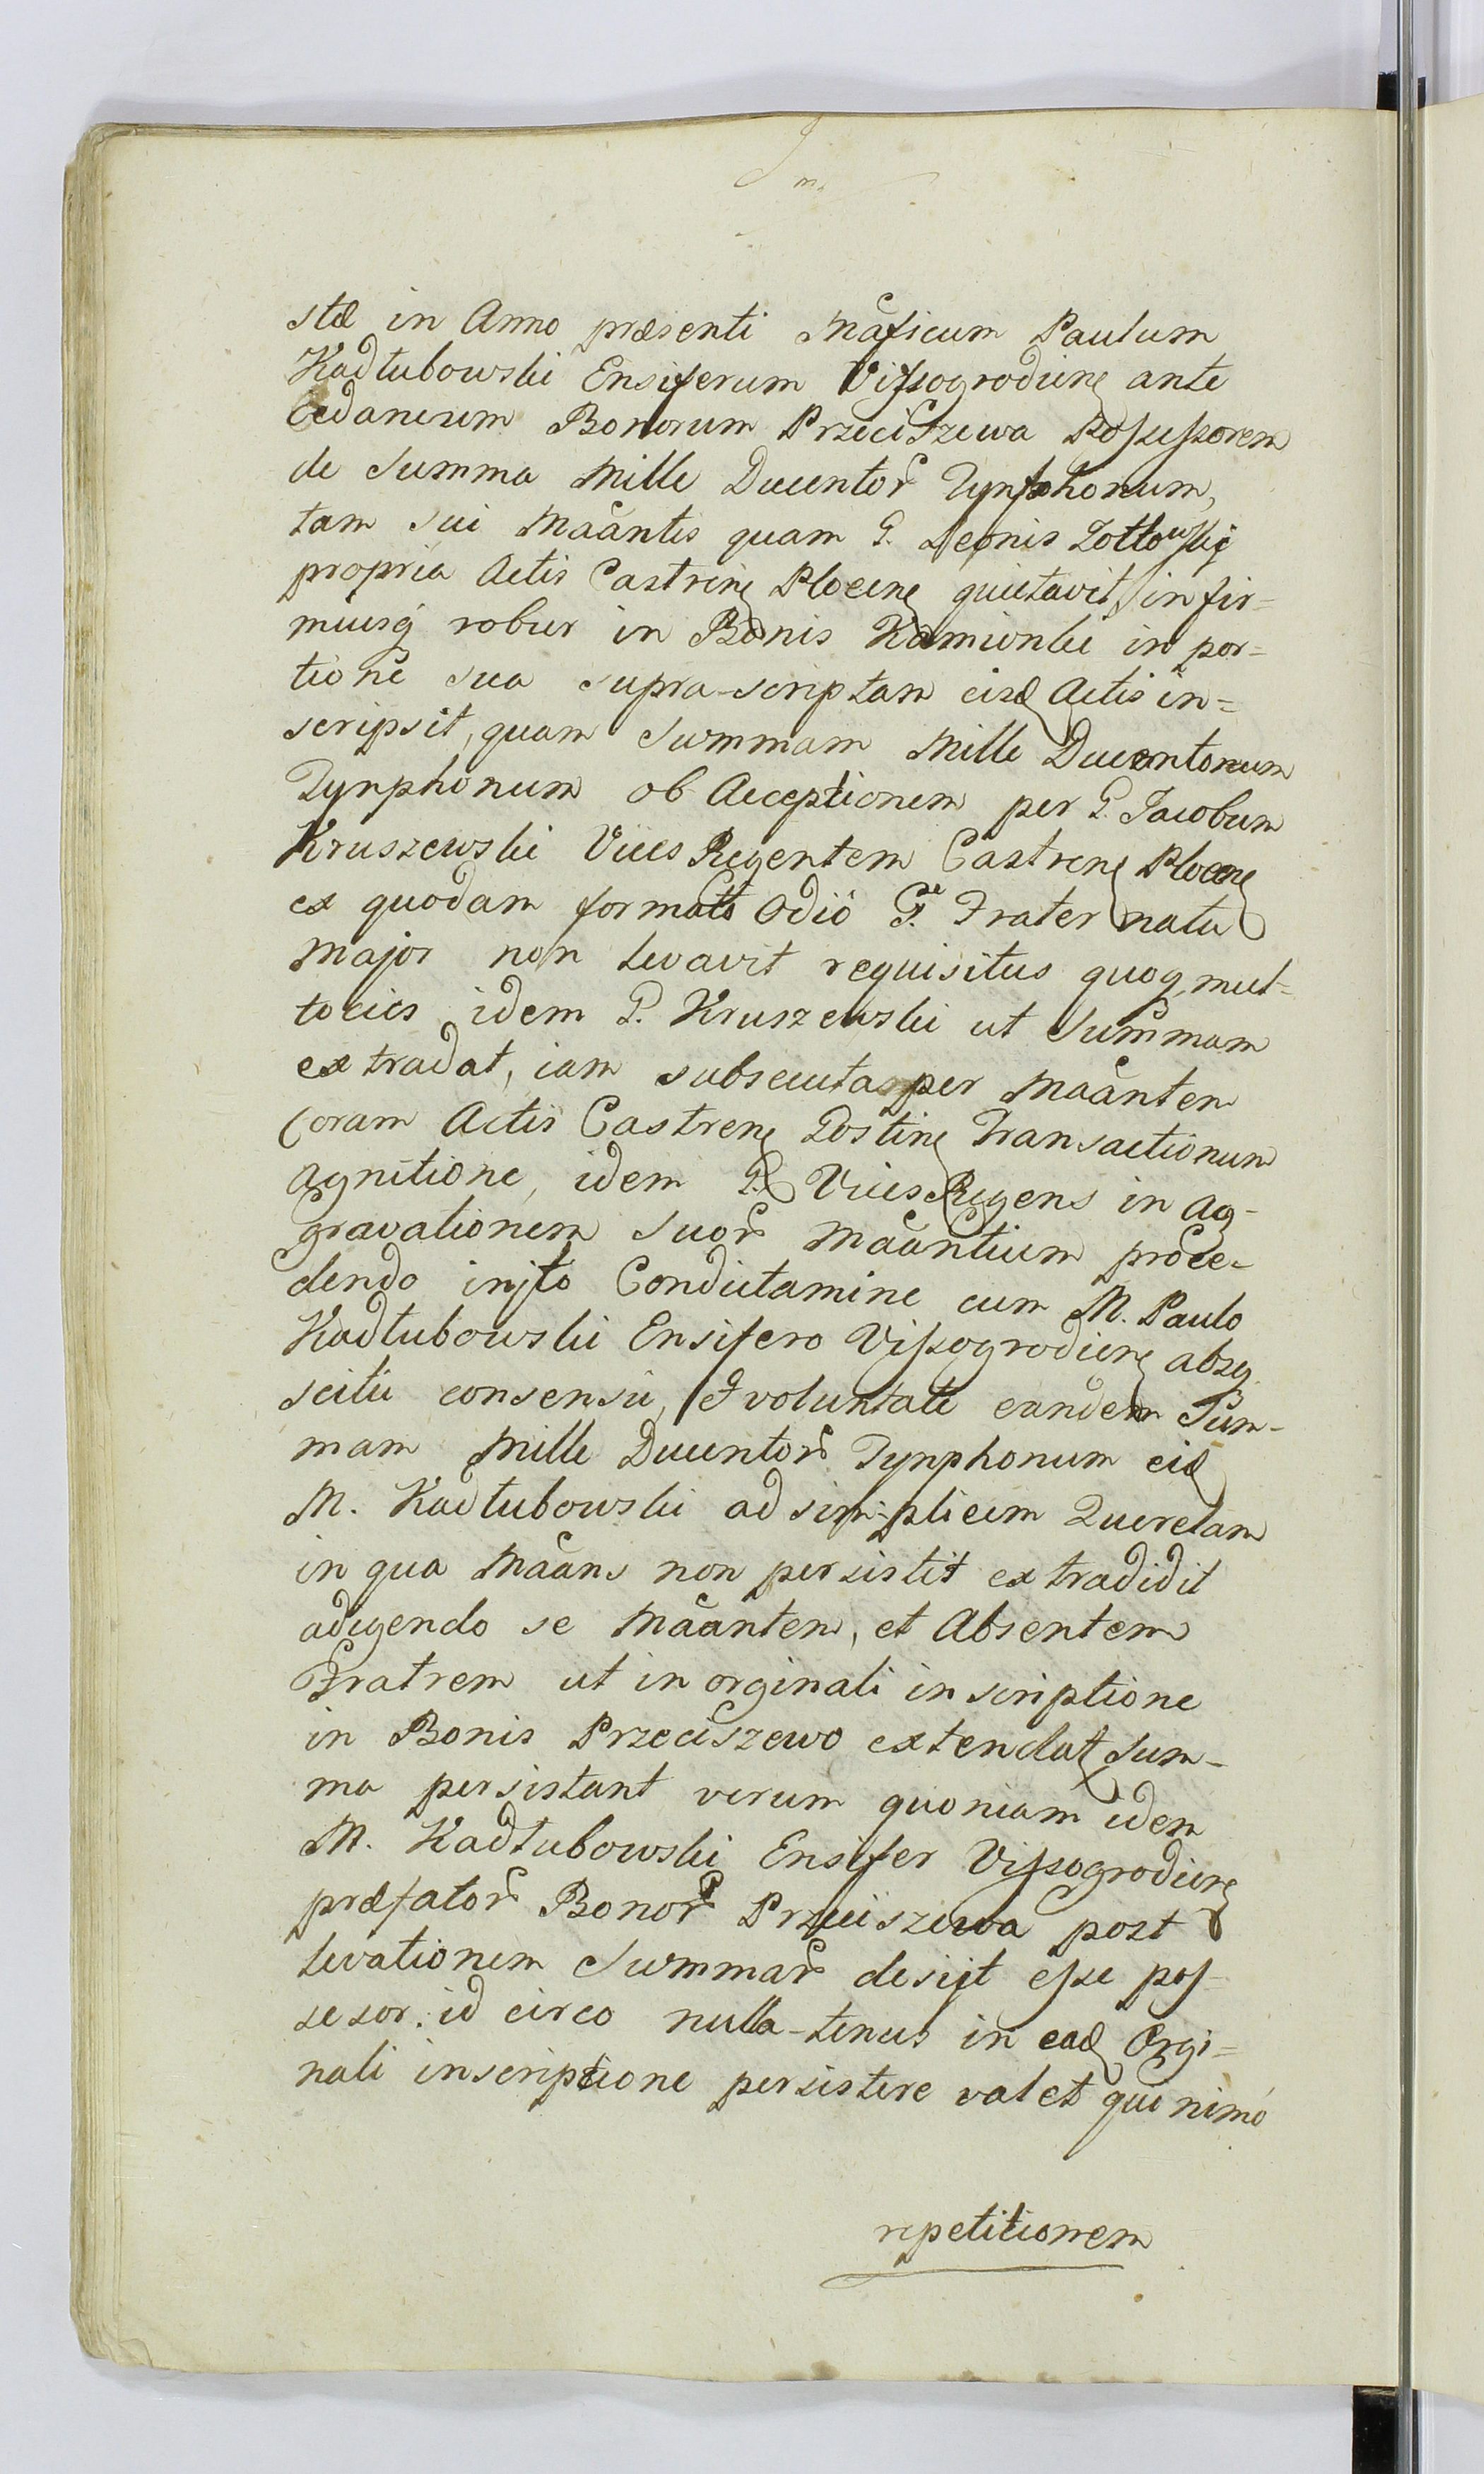 stæ in Anno præsenti Mãficum Paulum
Kadłubowski Ensiferum Vissogrodiene ante
cedaneum Bonorum Przeciszewa Possessorem
de Summa Mille Ducentor Tynphonum,
tam sui Maantis quam G. Leonis Zottowskij
propria Actis Castrene Plocene quietavit, in fir=
miusq robur in Bonis Kamionki in por=
tione sua supra-scriptam eisd Actis in=
scripsit, quam Summam Mille Ducentorum
Tynphonum ob Acceptionem per G. Jacobum
Kruszewski Vices Regentem Castrene Plocene
ex quodam formato Odio G. Frater natu
major non levavit requisitus quoq mul=
tocies idem G. Kruszewski ut Summam
extradat, iam subsecuta per Maantem
coram Actis Castrene Gostine Transactionum
agnitione, idem G. Vices Regens in ag-
gravationem suor Maantium proce-
dendo injto Condictamine cum M. Paulo
Kadłubowski Ensifero Vissogrodiene absq
scitu consensu, & voluntate eandem Sum-
mam Mille Ducentor Tynphonum eid
M. Kadłubowski ad sim-plicem Querelam
in qua Maans non persistit extradidit
adigendo se Maantem, et Absentem
Fratrem ut in orginali inscriptione
in Bonis Przeciszewo extendat Sum-
ma persistant verum quoniam idem
M. Kadłubowski Ensifer Vissogrodiene
præfator Bonor Przeciszewa post
levationem Summar desijt esse pos-
sesor: id circo nulla-tenus in ead Orgi=
nali inscriptione persistere valet qui nimo
repetitionem